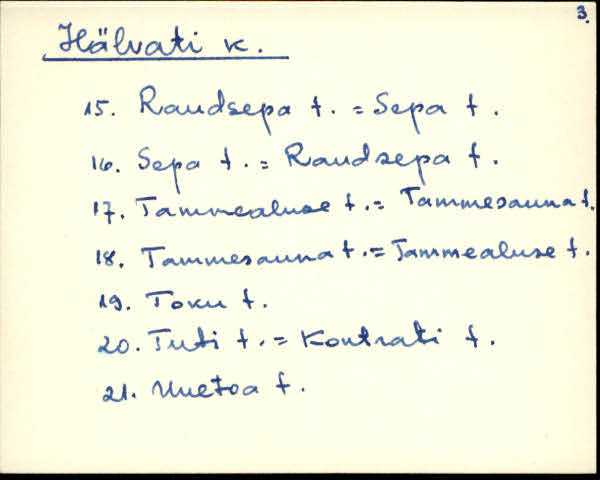 3.
Hälvati k.
15. Raudsepa t. = Sepa t.
16. Sepa t. = Raudsepa t.
17. Tammealuse t. = Tammesauna t.
18. Tammesauna t. = Tammealuse t.
19. Toku t.
20. Tuti t. = Kontrati t.
21. Uuetoa t.